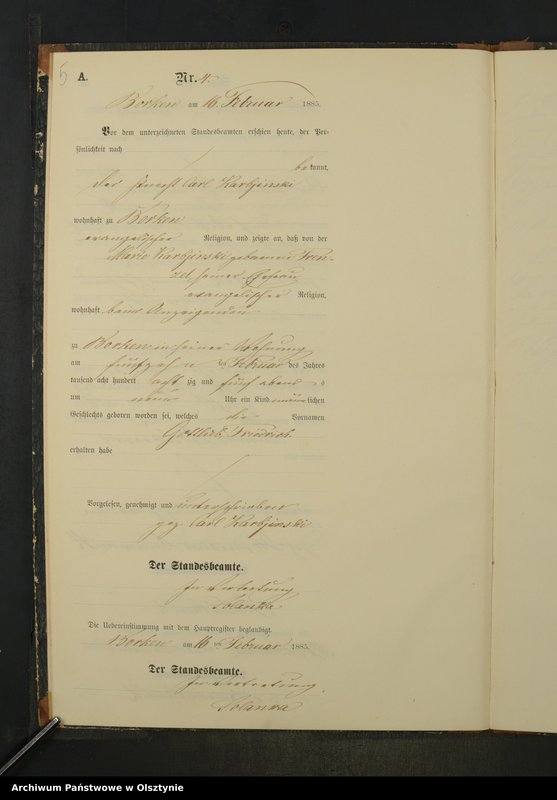 5
A. Nr. 4.
Borken am 16. Februar 1885.
Vor dem unterzeichneten Standesbeamten erschien heute, der Per-
sönlichkeit nach
bekannt,
der Carl Karbjinski
wohnhaft zu Borken
evangelischer Religion, und zeigte an, daß von der
Marie Karbjinski geborenen Fren-
zel, seiner Ehefrau
evangelischer Religion,
wohnhaft beim Anzeigenden
zu Borken in seiner Wohnung
am fünfzehn ten Februar des Jahres
tausend acht hundert acht zig und fünf abends
um neun Uhr ein Kind männlichen
Geschlechts geboren worden sei, welches die Vornamen
Gottlieb Friedrich
erhalten habe
Vorgelesen, genehmigt und unterschrieben
gez Carl Karbjinski
Der Standesbeamte.
In Vertretung
Die Uebereinstimmung mit dem Hauptregister beglaubigt.
Borken am 16 ten Februar 1885.
Der Standesbeamte.
In Vertretung.
Archiwum Państwowe w Olsztynie